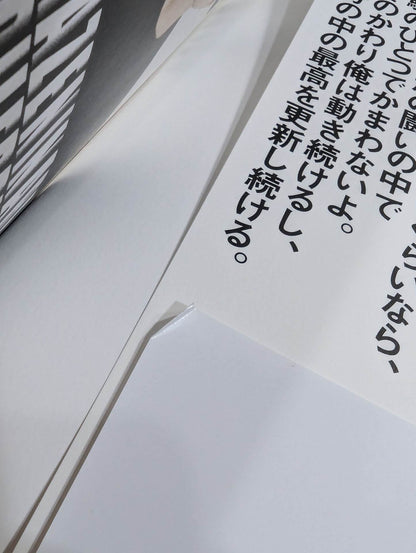 くらいなら、
の闘いの中で
のひとつでかまわないよ。
のかわり俺は動き続けるし、
の中の最高を更新し続ける。